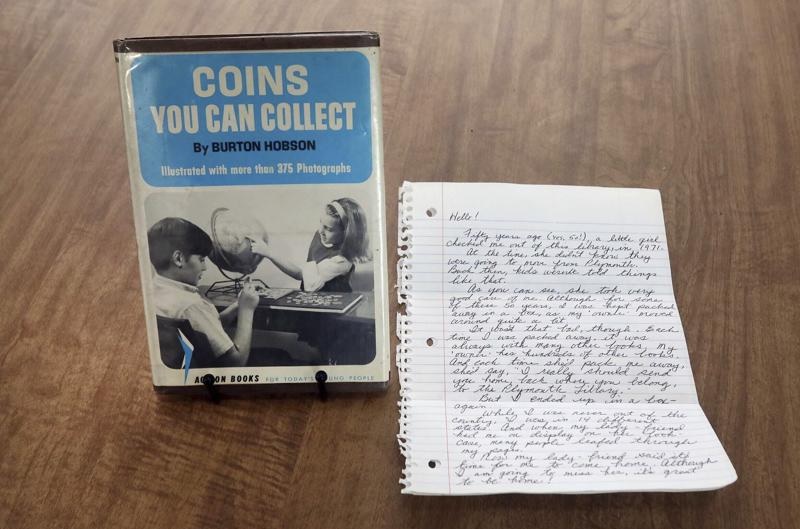 COINS
YOU CAN COLLECT
By BURTON HOBSON
Illustrated with more than 375 Photographs
ACTION BOOKS FOR TODAY'S YOUNG PEOPLE
Hello!
Fifty years ago (Yes, 50!), a little girl
checked me out of this library, in 1971.
At the time, she didn't know they
were going to move from Plymouth.
Back then, kids weren't told things
like that.
As you can see, she took very
good care of me. Although for some
of these 50 years, I was kept packed
away in a box, as my "owner" moved
around quite a bit.
It wasn't that bad, though. Each
time I was packed away, it was
always with many other books. My
"owner" has hundreds of other books.
And each time she'd pack me away,
she'd say, "I really should send
you home, back where you belong,
to the Plymouth Library.
But I ended up in a box
again.
While I was never out of the
country, I was in 14 different
states. And when my lady-friend
had me on display on her book
case, many people leafed through
my pages.
Now my lady-friend said it's
time for me to come home. Although
I am going to miss her, it's great
to be home!